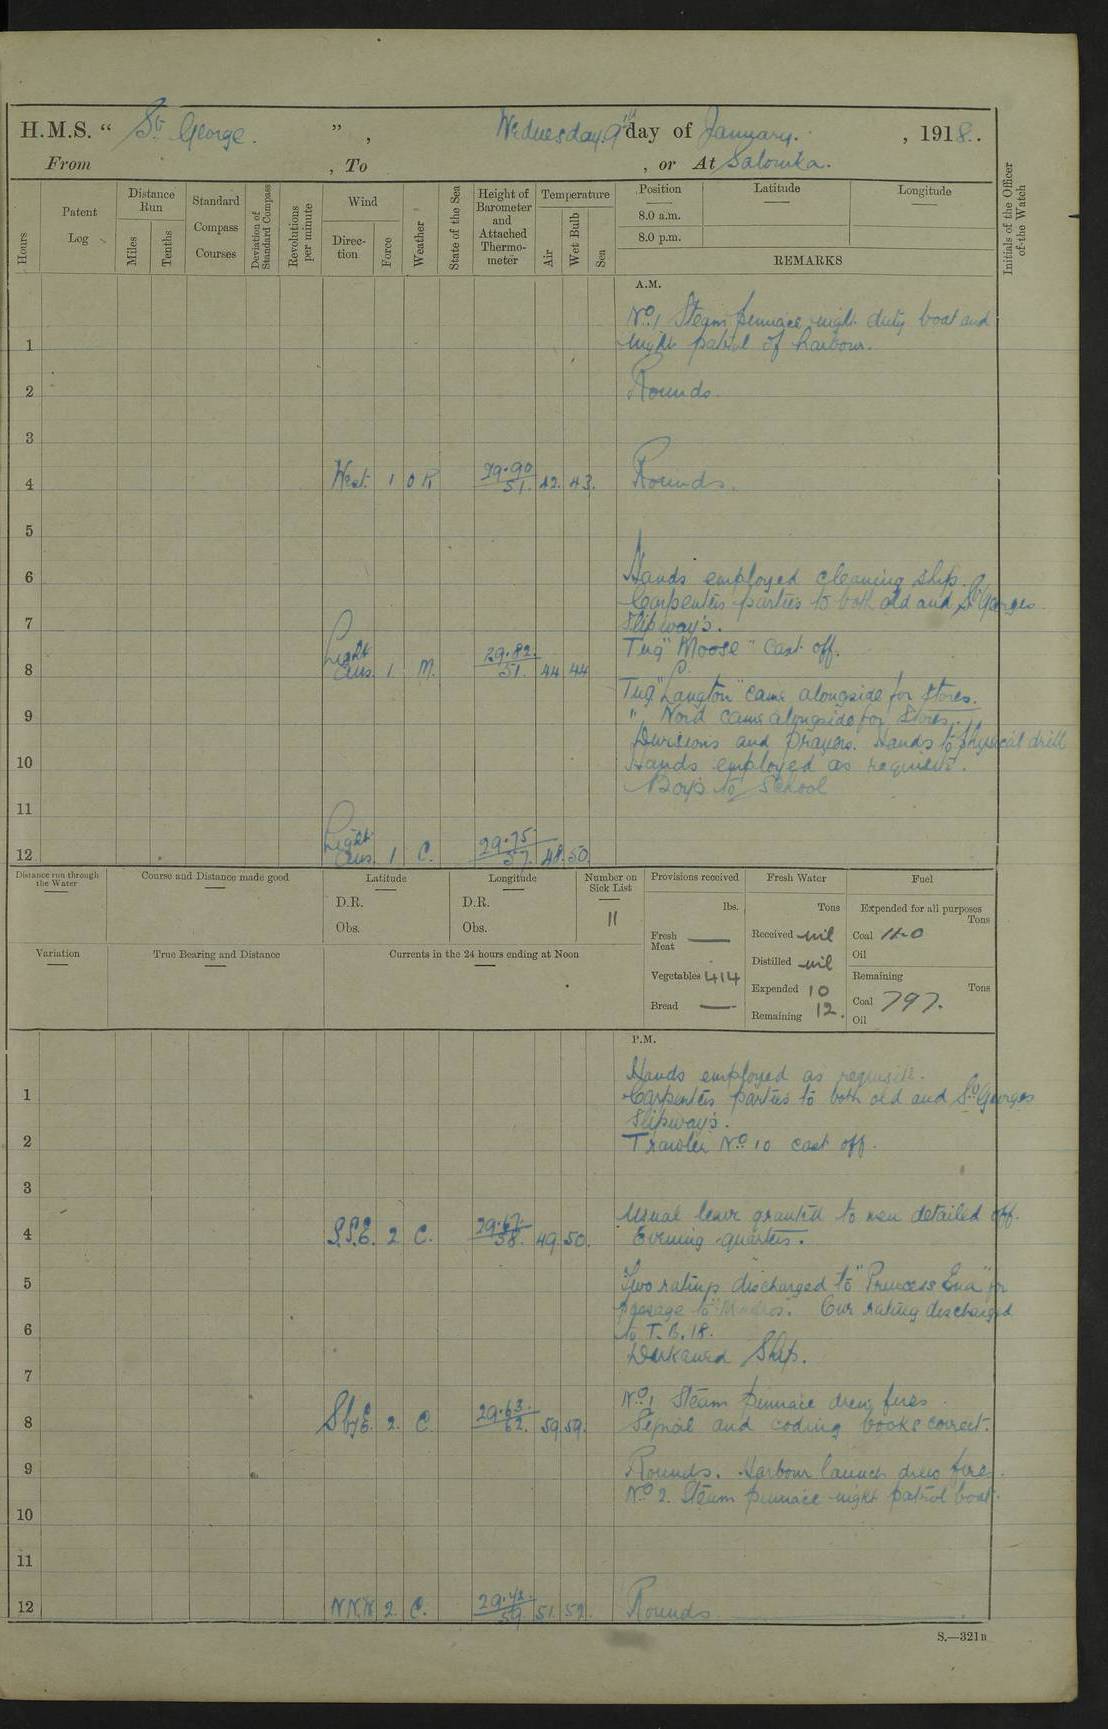 H.M.S. “ St George. ” , Wednesday. 9th day of January. , 1918.
From , To , or At Salonika.
Hours
Patent Log
Distance Run
Miles
Tenths
Standard Compass Courses
Deviation of Standard Compass
Revolutions per minute
Wind
Direction
Force
Weather
State of the Sea
Height of Barometer and Attached Thermometer
Temperature
Air
Wet Bulb
Sea
Position
8.0 a.m.
8.0 p.m.
Latitude
Longitude
REMARKS
Initials of the Officer of the Watch
A.M.
No. 1 Steam pinnace night duty boat and
1 night patrol of harbour.
2 Rounds.
3
4 West. 1 29.90 51. 42. 43. Rounds.
5
6 Hands employed cleaning ship.
Carpenters parties to both old and St Georges
7 Slipway's.
Tug "Moose" cast off.
8 Light airs. 1 M. 29.82. 51. 44 44
Tug "Langton" came alongside for stores.
9 " Nord came alongside for stores.
Divisions and Prayers. Hands to physical drill
10 Hands employed as requisite.
Boys to School
11
12 Light airs. 1 C. 29.75 57. 48. 50.
Distance run through the Water
Course and Distance made good
Latitude
D.R.
Obs.
Longitude
D.R.
Obs.
Number on Sick List
11
Provisions received
lbs.
Fresh Meat —
Vegetables 414
Bread —
Fresh Water
Tons
Received nil
Distilled nil
Expended 10
Remaining 12.
Fuel
Expended for all purposes
Tons
Coal
Oil
Remaining
Tons
Coal 797.
Oil
Variation
True Bearing and Distance
Currents in the 24 hours ending at Noon
P.M.
Hands employed as requisite.
1 Carpenters parties to both old and St Georges
Slipway's.
2 Trawler No. 10 cast off.
3
Usual leave granted to men detailed off.
4 S.S.E. 2 C. 29.67. 58. 49. 50. Evening quarters.
5 Two ratings discharged to "Princess Ena" for
passage to "Mudros". One rating discharged
6 to T.B. 18.
Darkened Ship.
7
No. 1 Steam pinnace drew fires
8 SbyE. 2. C. 29.63. 62. 59. 59. Signal and coding books correct.
9 Rounds. Harbour launch drew fires.
No. 2. Steam pinnace night patrol boat.
10
11
12 N.N.W. 2. C. 59 51. 52. Rounds
S.—321B